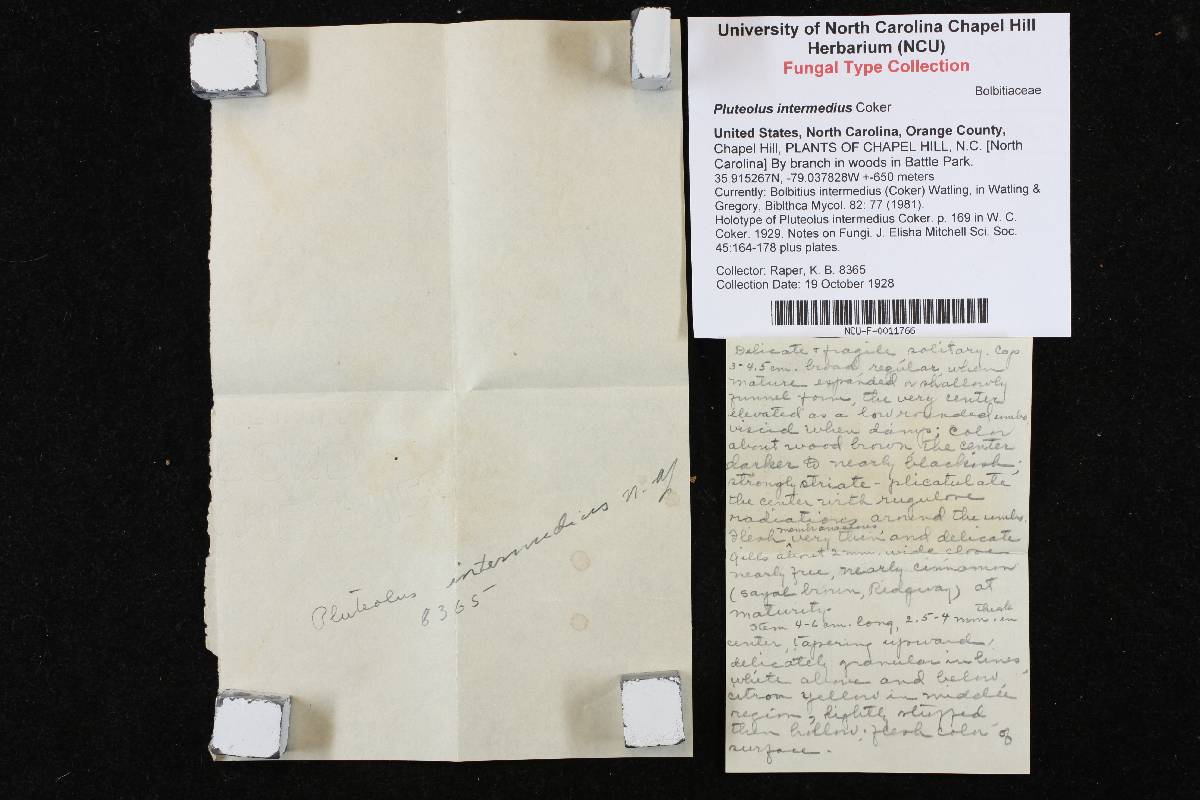 University of North Carolina Chapel Hill
Herbarium (NCU)
Fungal Type Collection
Bolbitiaceae
Pluteolus intermedius Coker
United States, North Carolina, Orange County,
Chapel Hill, PLANTS OF CHAPEL HILL, N.C. [North
Carolina] By branch in woods in Battle Park.
35.915267N, -79.037828W +-650 meters
Currently: Bolbitius intermedius (Coker) Watling, in Watling &
Gregory, Biblthca Mycol. 82: 77 (1981).
Holotype of Pluteolus intermedius Coker. p. 169 in W. C.
Coker. 1929. Notes on Fungi. J. Elisha Mitchell Sci. Soc.
45:164-178 plus plates.
Collector: Raper, K. B. 8365
Collection Date: 19 October 1928
NCU-F-0011766
Delicate + fragile solitary. Cap
3-4.5 cm. broad, regular, when
mature expanded or shallowly
funnel form, the very center
elevated as a low rounded umbo
viscid when damp; color
about wood brown the center
darker to nearly blackish;
strongly striate-plicatulate
the center with rugulose
radiations around the umbo.
Flesh membranaceous, very thin and delicate
Gills about 2 mm. wide close
nearly free, nearly cinnamon
(sayal brown, Ridgway) at
maturity.
Stem 4-6 cm. long, 2.5-4 mm. thick in
center, tapering upward,
delicately granular in lines,
white above and below,
citron yellow in middle
region, lightly stuffed
then hollow; flesh color of
surface.
Pluteolus intermedius n. sp
8365